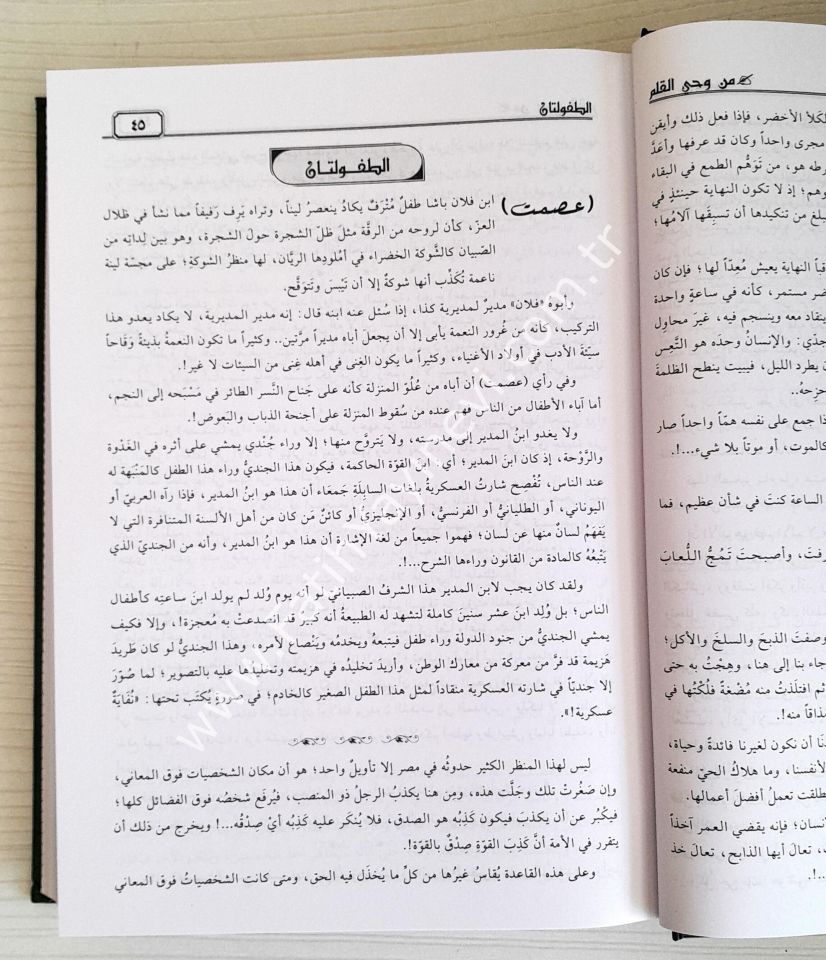 من وحي القلم
لكلأ الأخضر، فإذا فعل ذلك وأيقن
مجرى واحداً وكان قد عرفها وأعَدَّ
رطه هو، من تَوَهُّم الطمع في البقاء
وهم؛ إذ لا تكون النهاية حينئذٍ في
يبلغ من تنكيدها أن تسبِقَها آلامُها؛
قباً النهاية يعيش مُعِدّاً لها؛ فإن كان
ضر مستمر، كأنه في ساعةٍ واحدة
ينقاد معه وينسجم فيه، غيرَ محاوِل
جدي: والإنسانُ وحدَه هو التَّعِس
ن يطرد الليل، فيبيت ينطح الظلمةَ
حزحهُ..
ذا جمع على نفسه همّاً واحداً صار
كالموت، أو موتاً بلا شيء...!.
الساعة كنتَ في شأن عظيم، فما
رفتَ، وأصبحتَ تَمجُّ اللُّعابَ
وصفتَ الذبحَ والسلخَ والأكل؛
جاء بنا إلى هنا، وهِجْتُ به حتى
ثم افتلذتُ منه مُضْغةً فلُكْتُها في
مذاقاً منه!.
نا أن نكون لغيرنا فائدةً وحياة،
لأنفسنا، وما هلاكُ الحيِّ منفعة
طلقت تعملُ أفضلَ أعمالها.
نسان؛ فإنه يقضي العمر آخذاً
، تعالَ أيها الذابح، تعالَ خذ
...!.
الطفولتان
٤٥
الطفولتان
(عصمت) ابن فلان باشا طفلٌ مُتْرَفٌ يكادُ ينعصرُ ليناً، وتراه يَرِف رَفيفاً مما نشأ في ظلال
العزّ، كأن لروحه من الرقَّة مثلَ ظلّ الشجرة حولَ الشجرة، وهو بين لِداته من
الصّبيان كالشَّوكة الخضراء في أُملودِها الريّان، لها منظرُ الشوكةِ؛ على مجسّة لينة
ناعمة تُكَذِّب أنها شوكةٌ إلا أن تَيْبسَ وتَتوقَّح.
وأبوه «فلان» مديرٌ لمديرية كذا، إذا سُئل عنه ابنه قال: إنه مدير المديرية، لا يكاد يعدو هذا
التركيب، كأنه من غُرور النعمة يأبى إلا أن يجعل أباه مديراً مرَّتين.. وكثيراً ما تكون النعمةُ بذيئةً وَقَاحاً
سيِّئةَ الأدب في أولاد الأغنياء، وكثيراً ما يكون الغِنى في أهله غِنى من السيئات لا غير!.
وفي رأي (عصمت) أن أباه من عُلُوِّ المنزلة كأنه على جَناح النَّسر الطائر في مَسْبَحه إلى النجم،
أما آباء الأطفال من الناس فهم عنده من سُقوط المنزلة على أجنحة الذباب والبَعوض!.
ولا يغدو ابنُ المدير إلى مدرسته، ولا يَتروَّح منها؛ إلا وراء جُنْدي يمشي على أثره في الغَدْوة
والرَّوْحة، إذ كان ابنَ المدير؛ أي: ابنَ القوّة الحاكمة، فيكون هذا الجنديُّ وراء هذا الطفل كالمَنْبَهة له
عند الناس، تُفْصِح شارتُ العسكريةُ بلغات السابِلةِ جَمعَاء أن هذا هو ابنُ المدير، فإذا رآه العربيّ أو
اليوناني، أو الطليانيُّ أو الفرنسيُّ، أو الإنجليزيُّ أو كائنٌ مَن كان من أهل الألسنة المتنافرة التي لا
يَفهَمُ لسانٌ منها عن لسان؛ فهموا جميعاً من لغة الإشارة أن هذا هو ابنُ المدير، وأنه من الجنديّ الذي
يَتْبَعُهُ كالمادة من القانون وراءها الشرح...!.
ولقد كان يجب لابن المدير هذا الشرفُ الصبيانيّ لو أنه يوم وُلد لم يولد ابنَ ساعتِه كأطفال
الناس؛ بل وُلِد ابنَ عشر سنينَ كاملة لتشهد له الطبيعةُ أنه كبير قد انصدعتْ به معجزة!، وإلا فكيف
يمشي الجنديُّ من جنود الدولة وراء طفل فيتبعهُ ويخدمُه ويَنْصاع لأمره، وهذا الجنديُّ لو كان طَريدَ
هَزيمة قد فرَّ من معركة من معارك الوطن، وأريدَ تخليدُه في هزيمته وتخليدُها عليه بالتصوير؛ لما صُوّر
إلا جنديّاً في شارته العسكرية منقاداً لمثل هذا الطفل الصغير كالخادم؛ في صورةٍ يُكتَب تحتها: «نُفَايَةٌ
عسكرية!».
ليس لهذا المنظر الكثير حدوثُه في مصر إلا تأويلٌ واحد؛ هو أن مكان الشخصيات فوق المعاني،
وإن صَغُرتْ تلك وجَلَّت هذه، ومِن هنا يكذبُ الرجلُ ذو المنصب، فيُرفَع شخصُه فوق الفضائل كلها؛
فيكْبُر عن أن يكذبَ فيكون كَذِبُه هو الصدق، فلا يُنكَر عليه كَذِبُه أيْ صِدْقُه...! ويخرج من ذلك أن
يتقرر في الأمة أنَّ كَذِبَ القوّةِ صِدْقٌ بالقوّة!.
وعلى هذه القاعدة يُقاسُ غيرُها من كلِّ ما يُخذَل فيه الحق، ومتى كانت الشخصياتُ فوق المعاني
www.fatihyayinevi.com.tr